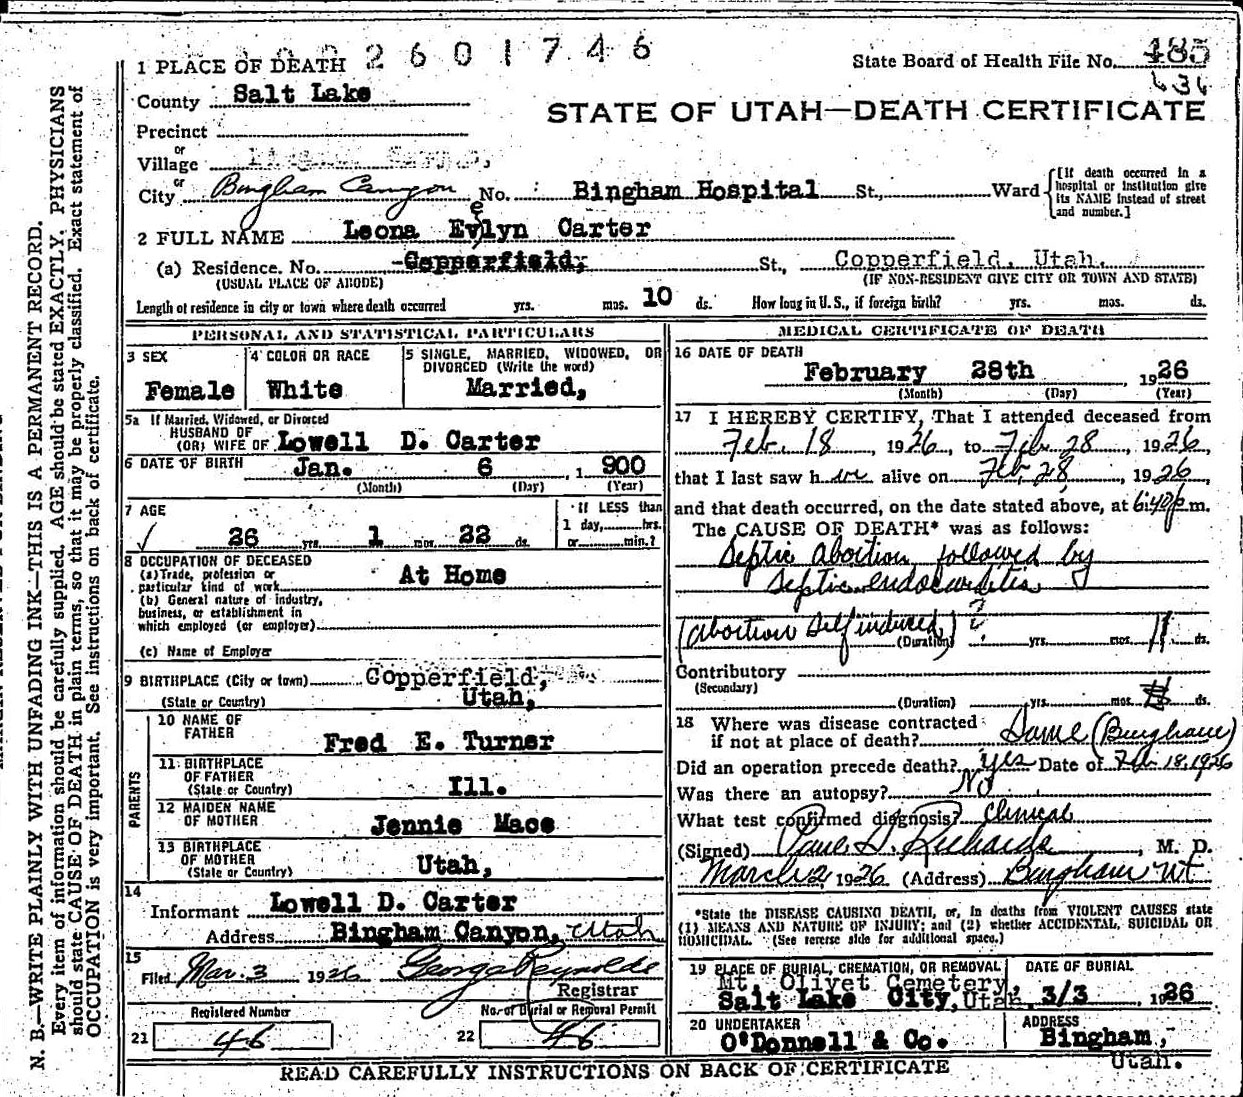 2601746
State Board of Health File No. 485
636
1 PLACE OF DEATH
County Salt Lake
STATE OF UTAH—DEATH CERTIFICATE
Precinct
or
Village
or
City Bingham Canyon No. Bingham Hospital St., Ward
[If death occurred in a hospital or institution give its NAME instead of street and number.]
2 FULL NAME Leona Evelyn Carter
(a) Residence. No. Copperfield, St., Copperfield, Utah.
(USUAL PLACE OF ABODE) (IF NON-RESIDENT GIVE CITY OR TOWN AND STATE)
Length of residence in city or town where death occurred yrs. mos. 10 ds. How long in U. S., if foreign birth? yrs. mos. ds.
PERSONAL AND STATISTICAL PARTICULARS
3 SEX
Female
4 COLOR OR RACE
White
5 SINGLE, MARRIED, WIDOWED, OR DIVORCED (Write the word)
Married,
5a If Married, Widowed, or Divorced
HUSBAND OF
(OR) WIFE OF Lowell D. Carter
6 DATE OF BIRTH Jan. 6 1 900
(Month) (Day) (Year)
7 AGE
✓ 26 yrs. 1 mos. 22 ds.
If LESS than
1 day, hrs.
or min.?
8 OCCUPATION OF DECEASED
(a) Trade, profession or
particular kind of work At Home
(b) General nature of industry,
business, or establishment in
which employed (or employer)
(c) Name of Employer
9 BIRTHPLACE (City or town) Copperfield,
(State or Country) Utah,
PARENTS
10 NAME OF FATHER
Fred E. Turner
11 BIRTHPLACE OF FATHER
(State or Country) Ill.
12 MAIDEN NAME OF MOTHER
Jennie Mace
13 BIRTHPLACE OF MOTHER
(State or Country) Utah,
14
Informant Lowell D. Carter
Address Bingham Canyon, Utah
15
Filed Mar. 3 1926 George Reynolds
Registrar
Registered Number
21 46
No. of Burial or Removal Permit
22 46
MEDICAL CERTIFICATE OF DEATH
16 DATE OF DEATH
February 28th, 1926
(Month) (Day) (Year)
17 I HEREBY CERTIFY, That I attended deceased from
Feb. 18, 1926, to Feb. 28, 1926,
that I last saw her alive on Feb. 28, 1926,
and that death occurred, on the date stated above, at 6:40 p m.
The CAUSE OF DEATH* was as follows:
Septic abortion followed by
Septic endocarditis
(abortion self induced) ?
(Duration) yrs. mos. 11 ds.
Contributory
(Secondary)
(Duration) yrs. mos. ds.
18 Where was disease contracted
if not at place of death? Same (Bingham)
Did an operation precede death? Yes Date of Feb. 18, 1926
Was there an autopsy? No
What test confirmed diagnosis? Clinical
(Signed) Paul S. Richards, M. D.
March 2 1926 (Address) Bingham Ut
*State the DISEASE CAUSING DEATH, or, in deaths from VIOLENT CAUSES state
(1) MEANS AND NATURE OF INJURY; and (2) whether ACCIDENTAL, SUICIDAL OR
HOMICIDAL. (See reverse side for additional space.)
19 PLACE OF BURIAL, CREMATION, OR REMOVAL
Mt. Olivet Cemetery,
Salt Lake City, Utah
DATE OF BURIAL
3/3, 1926
20 UNDERTAKER
O'Donnell & Co.
ADDRESS
Bingham,
Utah.
READ CAREFULLY INSTRUCTIONS ON BACK OF CERTIFICATE
N. B.—WRITE PLAINLY WITH UNFADING INK—THIS IS A PERMANENT RECORD.
Every item of information should be carefully supplied. AGE should be stated EXACTLY. PHYSICIANS
should state CAUSE OF DEATH in plain terms, so that it may be properly classified. Exact statement of
OCCUPATION is very important. See instructions on back of certificate.